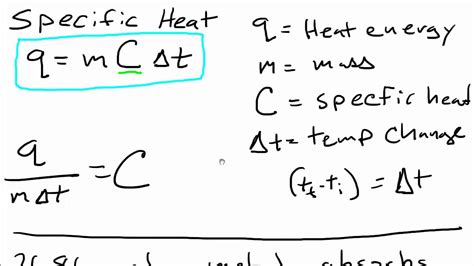 Specific Heat
q = m C Δt
q = Heat energy
m = mass
C = specfic heat
Δt = temp change
(t_f - t_i) = Δt
q / mΔt = C
absorbs